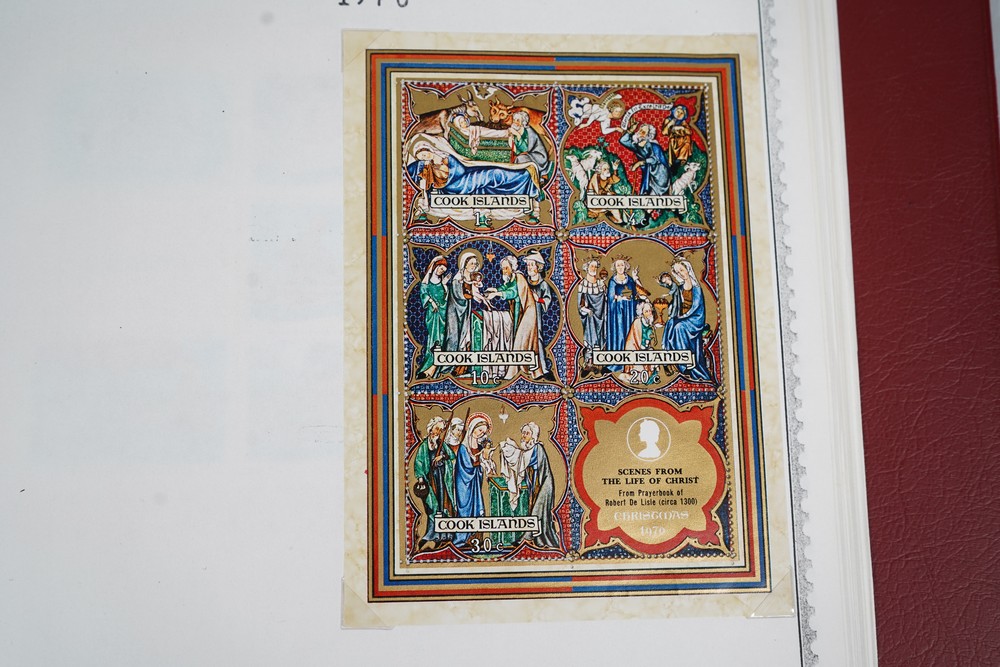 COOK ISLANDS
1c
COOK ISLANDS
4c
COOK ISLANDS
10c
COOK ISLANDS
20c
COOK ISLANDS
30c
SCENES FROM
THE LIFE OF CHRIST
From Prayerbook of
Robert De Lisle (circa 1300)
CHRISTMAS
1970